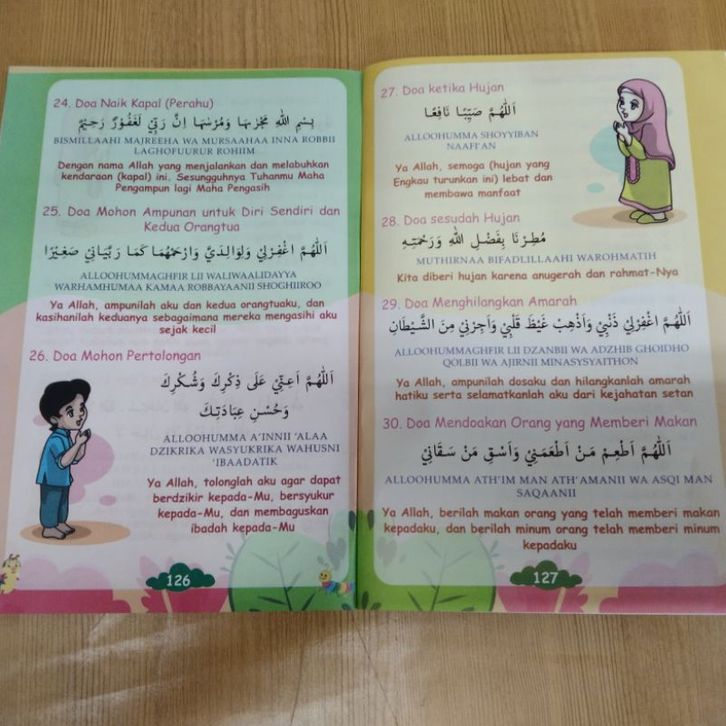 24. Doa Naik Kapal (Perahu)
بِسْمِ اللهِ مَجْرٰىهَا وَمُرْسٰىهَا اِنَّ رَبِّيْ لَغَفُوْرٌ رَحِيْمٌ
BISMILLAAHI MAJREEHA WA MURSAAHAA INNA ROBBII
LAGHOFUURUR ROHIIM
Dengan nama Allah yang menjalankan dan melabuhkan
kendaraan (kapal) ini. Sesungguhnya Tuhanmu Maha
Pengampun lagi Maha Pengasih
25. Doa Mohon Ampunan untuk Diri Sendiri dan
Kedua Orangtua
اَللّٰهُمَّ اغْفِرْلِيْ وَلِوَالِدَيَّ وَارْحَمْهُمَا كَمَا رَبَّيَانِيْ صَغِيْرًا
ALLOOHUMMAGHFIR LII WALIWAALIDAYYA
WARHAMHUMAA KAMAA ROBBAYAANII SHOGHIIROO
Ya Allah, ampunilah aku dan kedua orangtuaku, dan
kasihanilah keduanya sebagaimana mereka mengasihi aku
sejak kecil
26. Doa Mohon Pertolongan
اَللّٰهُمَّ اَعِنِّيْ عَلَى ذِكْرِكَ وَشُكْرِكَ
وَحُسْنِ عِبَادَتِكَ
ALLOOHUMMA A'INNII 'ALAA
DZIKRIKA WASYUKRIKA WAHUSNI
'IBAADATIK
Ya Allah, tolonglah aku agar dapat
berdzikir kepada-Mu, bersyukur
kepada-Mu, dan membaguskan
ibadah kepada-Mu
126
27. Doa ketika Hujan
اَللّٰهُمَّ صَيِّبًا نَافِعًا
ALLOOHUMMA SHOYYIBAN
NAAFI'AN
Ya Allah, semoga (hujan yang
Engkau turunkan ini) lebat dan
membawa manfaat
28. Doa sesudah Hujan
مُطِرْنَا بِفَضْلِ اللهِ وَرَحْمَتِهِ
MUTHIRNAA BIFADLILLAAHI WAROHMATIH
Kita diberi hujan karena anugerah dan rahmat-Nya
29. Doa Menghilangkan Amarah
اَللّٰهُمَّ اغْفِرْلِيْ ذَنْبِيْ وَاَذْهِبْ غَيْظَ قَلْبِيْ وَاَجِرْنِيْ مِنَ الشَّيْطَانِ
ALLOOHUMMAGHFIR LII DZANBII WA ADZHIB GHOIDHO
QOLBII WA AJIRNII MINASYSYAITHON
Ya Allah, ampunilah dosaku dan hilangkanlah amarah
hatiku serta selamatkanlah aku dari kejahatan setan
30. Doa Mendoakan Orang yang Memberi Makan
اَللّٰهُمَّ اَطْعِمْ مَنْ اَطْعَمَنِيْ وَاَسْقِ مَنْ سَقَانِيْ
ALLOOHUMMA ATH'IM MAN ATH'AMANII WA ASQI MAN
SAQAANII
Ya Allah, berilah makan orang yang telah memberi makan
kepadaku, dan berilah minum orang telah memberi minum
kepadaku
127